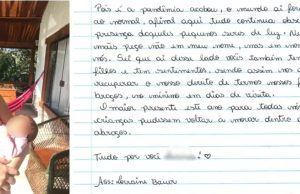 Pois é a pandemia acabou, o mundo aí fora
ao normal, afinal aqui tudo continua
presença daqueles pequenos seres de luz.
mais peço não em meu nome, mas em
Sei que aí desse lado vocês também tem
filhos e tem sentimentos, sendo assim nos
recuperar o nosso direito de termos nossos
braços, no mínimo em dias de visita.
O maior presente este ano para todas
crianças pudessem voltar a morar dentro
abraços.
Tudo por você
Ass: Lorraine Bauer